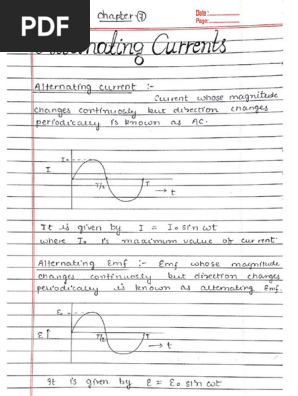 PDF
Chapter-7
Date :
Page:
Alternating Currents
Alternating current :-
Current whose magnitude
changes continuosly but direction changes
periodically is known as AC.
Io
I
T/2
T
→ t
It is given by I = Io sin ωt
where Io is maximum value of current.
Alternating Emf :- Emf whose magnitude
changes continuosly but direction changes
periodically is known as alternating Emf.
Eo
E↑
T/2
T
→ t
It is given by E = Eo sin ωt